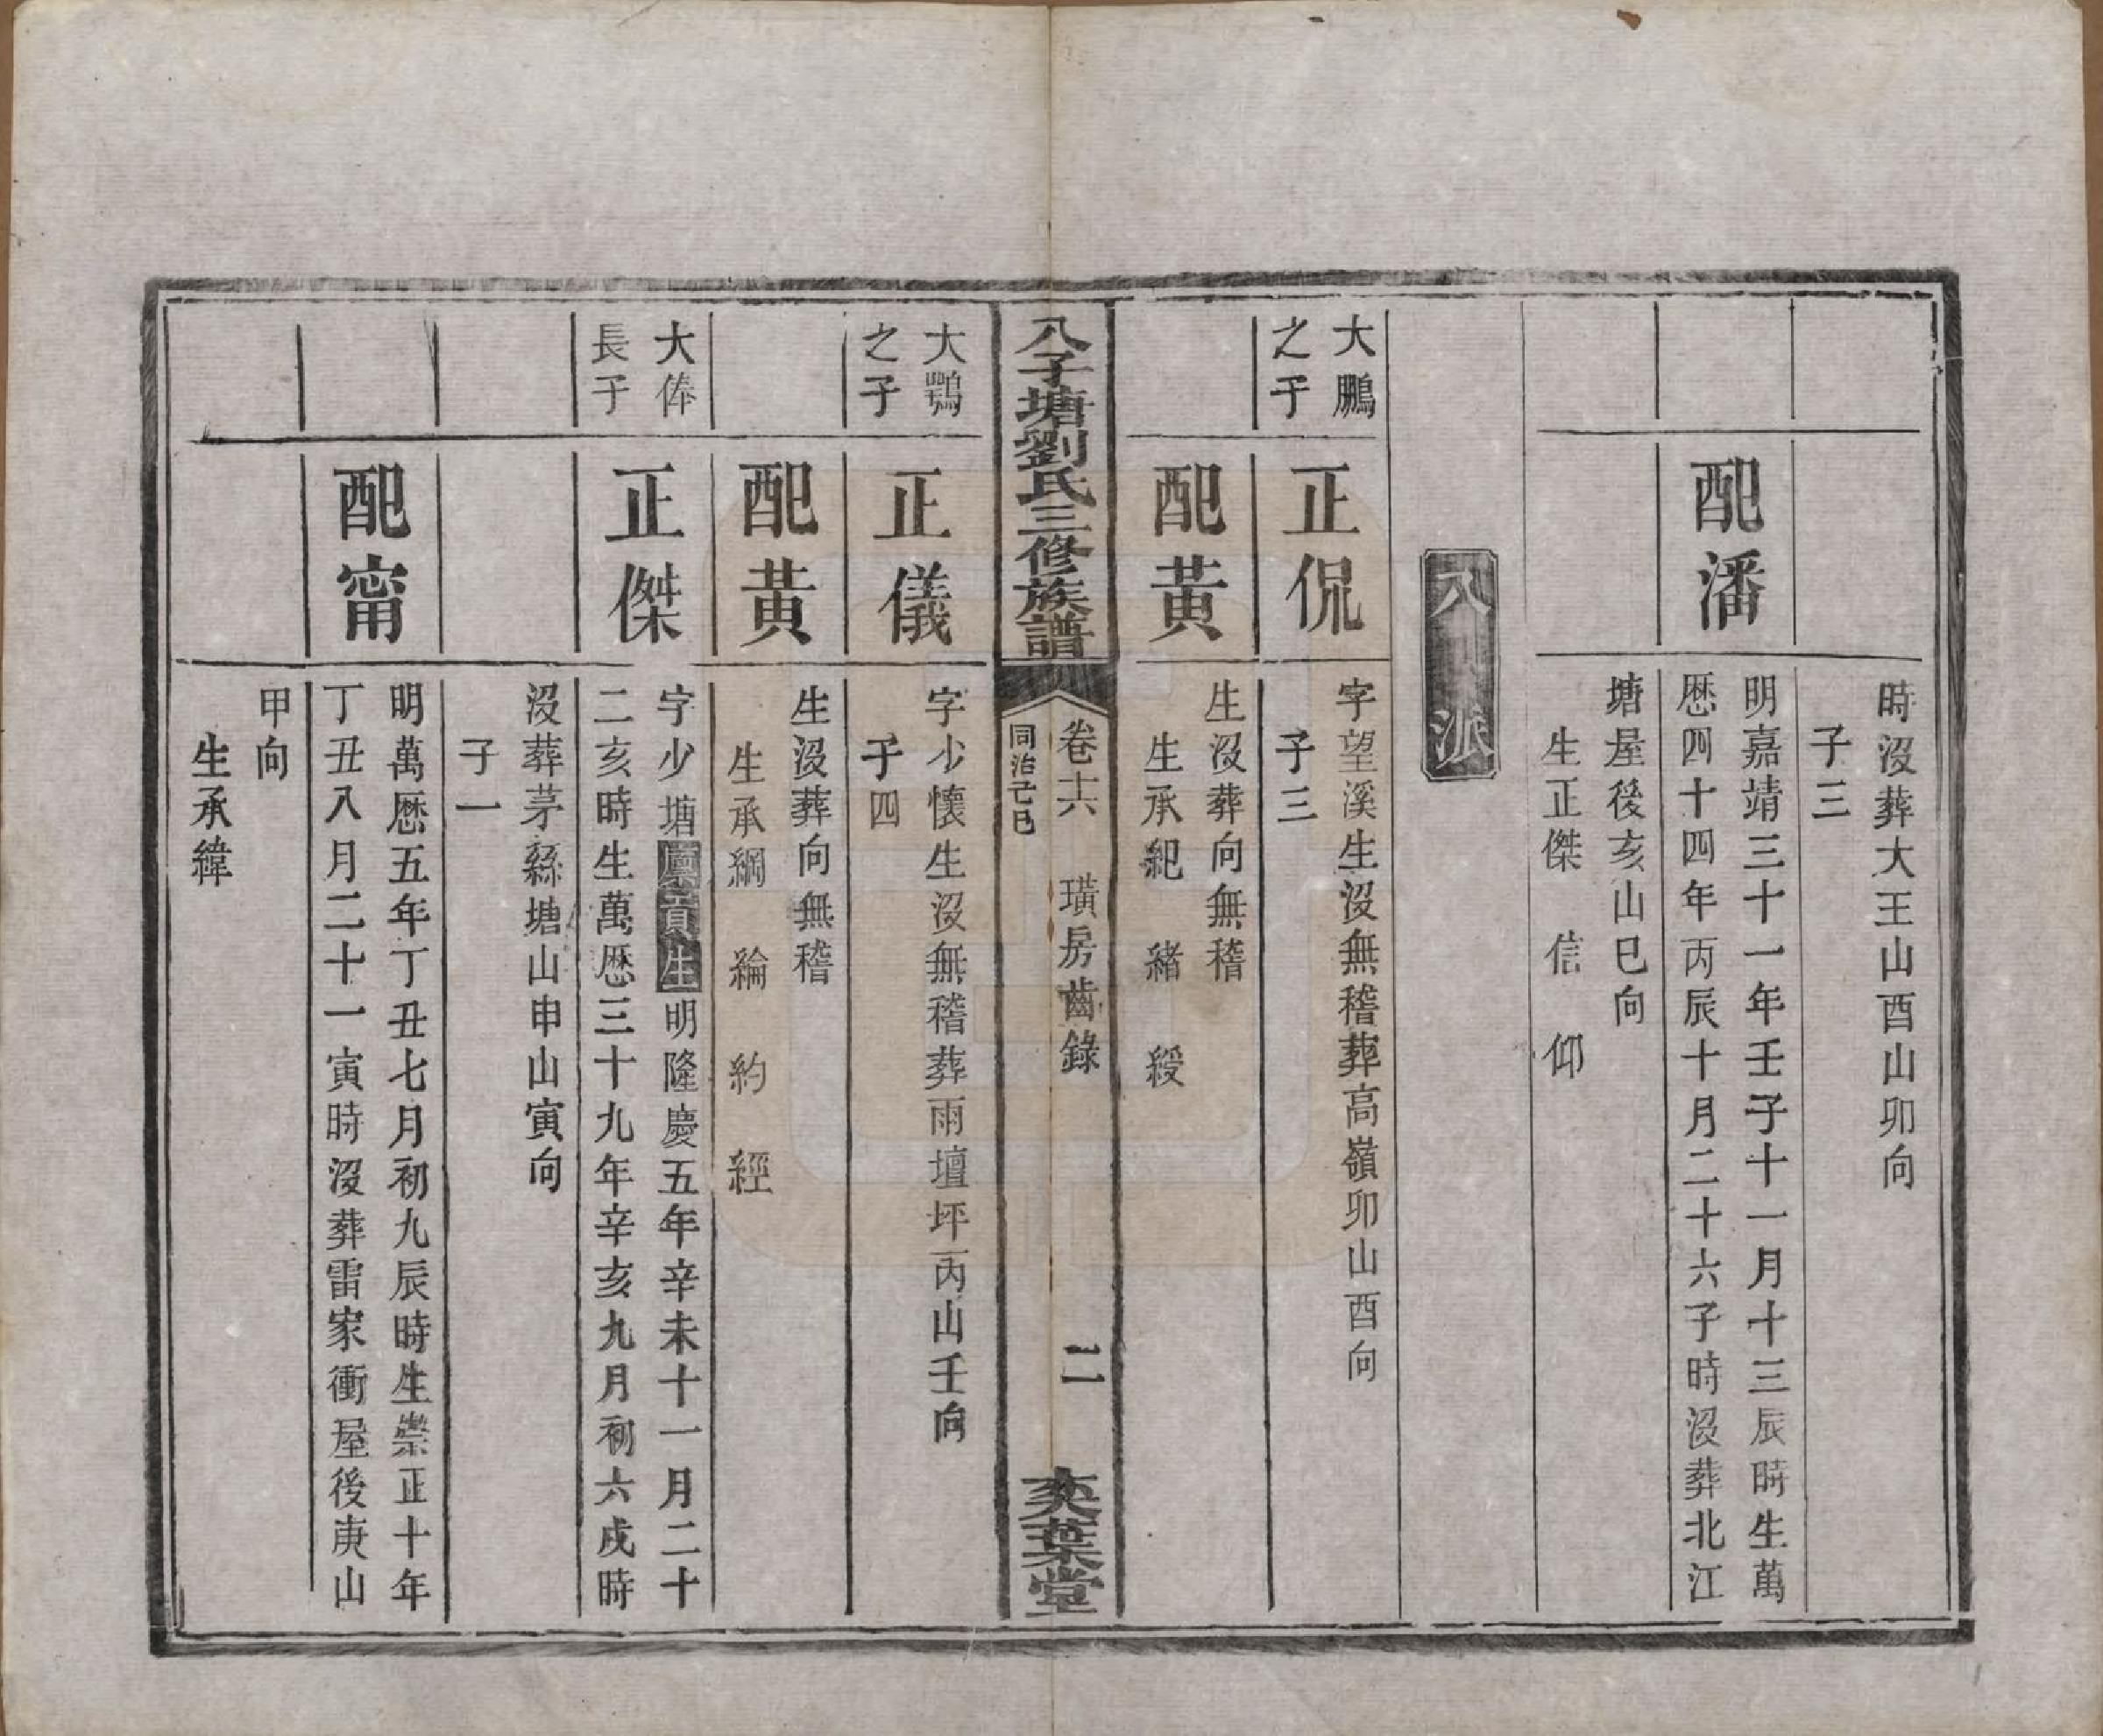 時沒葬大王山酉山卯向
子三
配潘
明嘉靖三十一年壬子十一月十三辰時生萬
厯四十四年丙辰十月二十六子時沒葬北江
塘屋後亥山巳向
生正傑 信 仰
八派
大鵬
之子
正侃
字望溪生沒無稽葬高嶺卯山酉向
子三
配黃
生沒葬向無稽
生承紀 緒 綬
八子塘劉氏三修族譜
卷十六 璜房齒錄
同治己巳
二
奕葉堂
大鶚
之子
正儀
字少懷生沒無稽葬雨壇坪丙山壬向
子四
配黃
生沒葬向無稽
生承綱 綸 約 經
大俸
長子
正傑
字少塘廩貢生明隆慶五年辛未十一月二十
二亥時生萬厯三十九年辛亥九月初六戌時
沒葬茅絲塘山申山寅向
子一
配甯
明萬厯五年丁丑七月初九辰時生崇正十年
丁丑八月二十一寅時沒葬雷家衝屋後庚山
甲向
生承緯